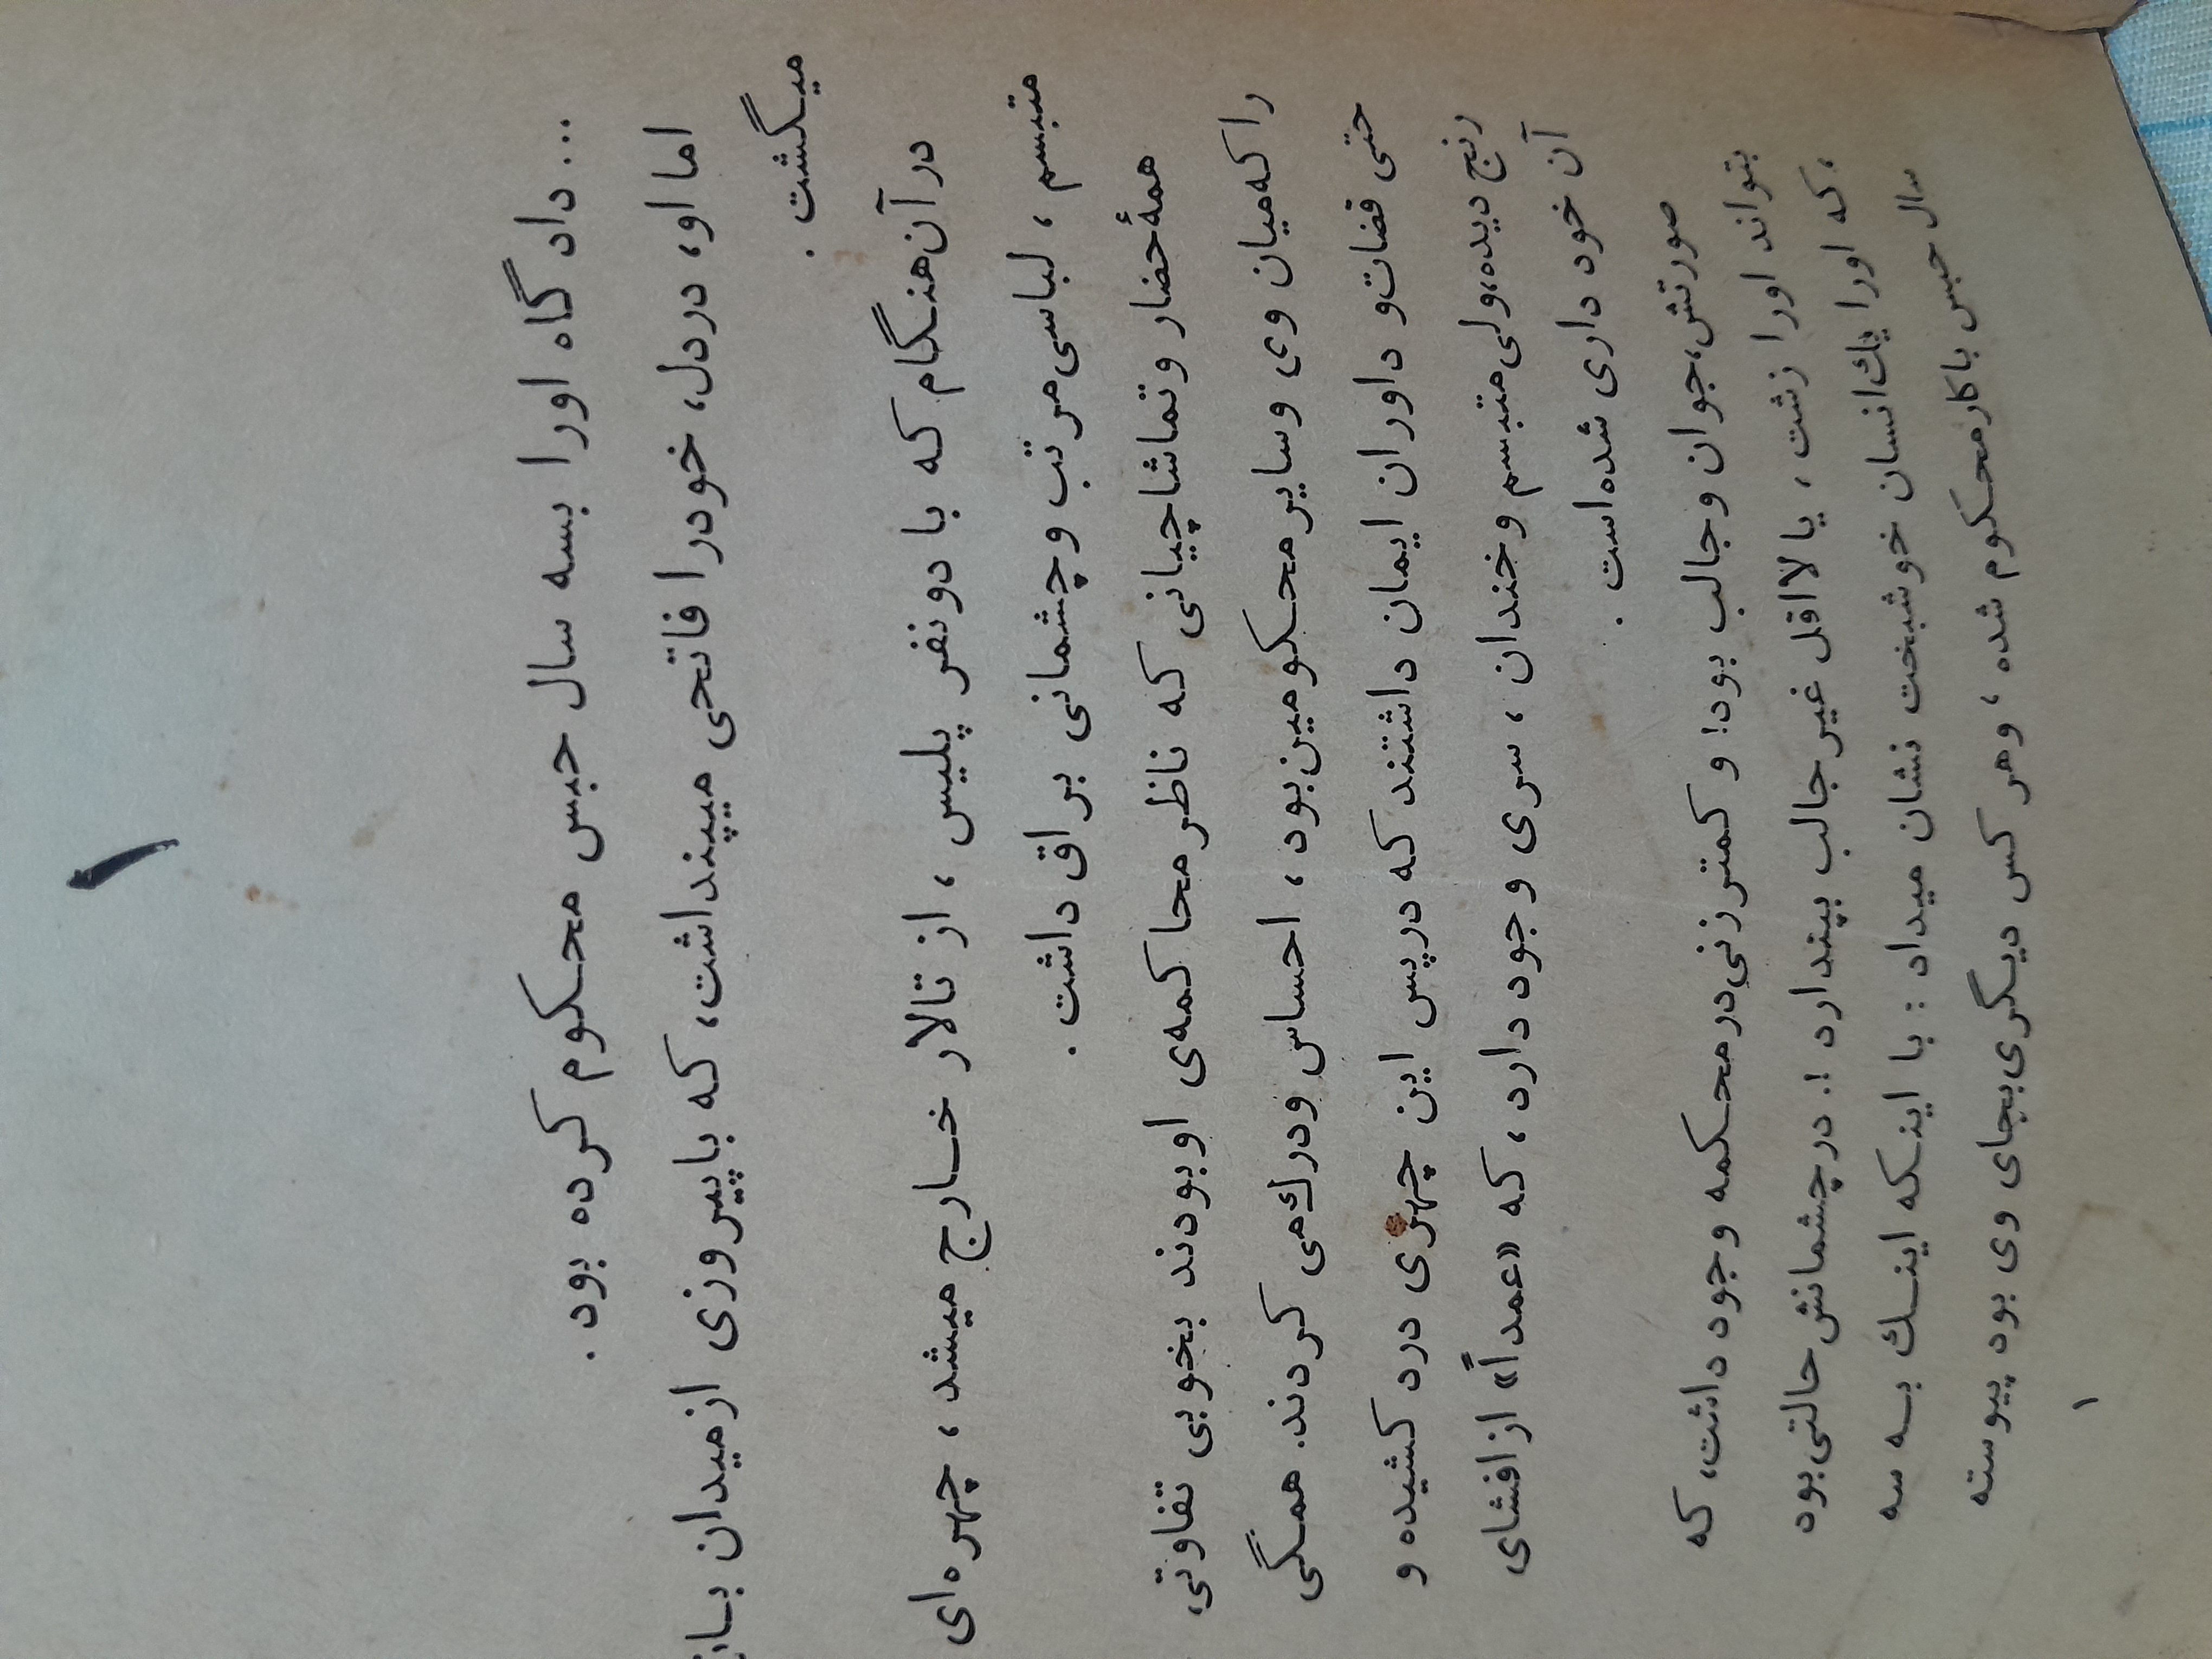 ۱
... داد گاه اورا بسه سال حبس محکوم کرده بود .
اما او، دردل، خودرا فاتحی میپنداشت، که باپیروزی ازمیدان باز
میگشت .
در آن هنگام که با دونفر پلیس ، از تالار خارج میشد ، چهره‌ای
متبسم ، لباسی مرتب و چشمانی براق داشت .
همهٔ حضار و تماشاچیانی که ناظر محاکمه‌ی اوبودند بخوبی تفاوتی،
راکه میان وی وسایر محکومین بود ، احساس ودرك می کردند. همگی
حتی قضات و داوران ایمان داشتند که درپس این چهره‌ی درد کشیده و
رنج دیده،ولی متبسم وخندان ، سری وجود دارد ، که «عمداً» از افشای
آن خود داری شده است .
صورتش،جوان وجالب بود! و کمتر زنی درمحکمه وجود داشت، که
بتواند اورا زشت ، یا لااقل غیر جالب بپندارد !. درچشمانش حالتی بود
،که اورا یك انسان خوشبخت نشان میداد : با اینکه اینك بـه سه
سال حبس باکار محکوم شده ، وهر کس دیگری بجای وی بود پیوسته
۱